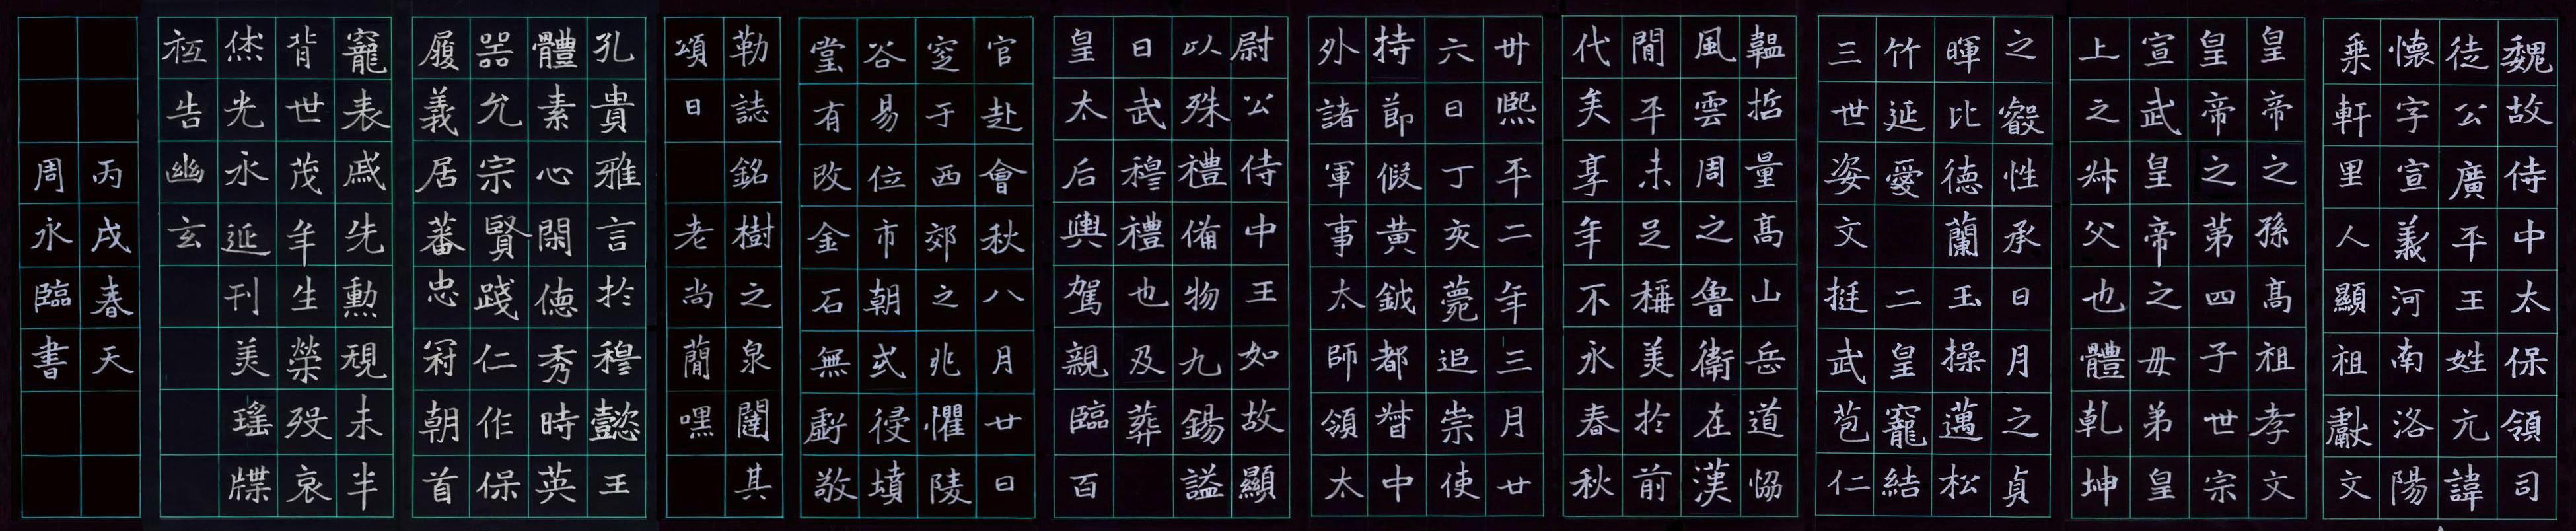 魏故侍中太保領司
徒公廣平王姓元諱
懷字宣義河南洛陽
乗軒里人顯祖獻文
皇帝之孫高祖孝文
皇帝之第四子世宗
宣武皇帝之母弟皇
上之叔父也體乹坤
之叡性承日月之貞
暉比德蘭玉操邁松
竹延愛 二皇寵結
三世姿文挺武苞仁
韞哲量高山岳道協
風雲周之魯衛在漢
閒平未足稱美於前
代矣享年不永春秋
卅熙平二年三月廿
六日丁亥薨追崇使
持節假黄鉞都督中
外諸軍事太師領太
尉公侍中王如故顯
以殊禮備物九錫謚
日武穆禮也及葬
皇太后輿駕親臨百
官赴會秋八月廿日
窆于西郊之兆懼陵
谷易位市朝或侵墳
塋有改金石無虧敬
勒誌銘樹之泉闥其
頌日 老尚簡嘿
孔貴雅言於穆懿王
體素心閑德秀時英
器允宗賢踐仁作保
履義居蕃忠冠朝首
寵表戚先勲覌未半
背世茂年生榮殁哀
烋光永延刊美瑤牒
祗告幽玄
丙戌春天
周永臨書